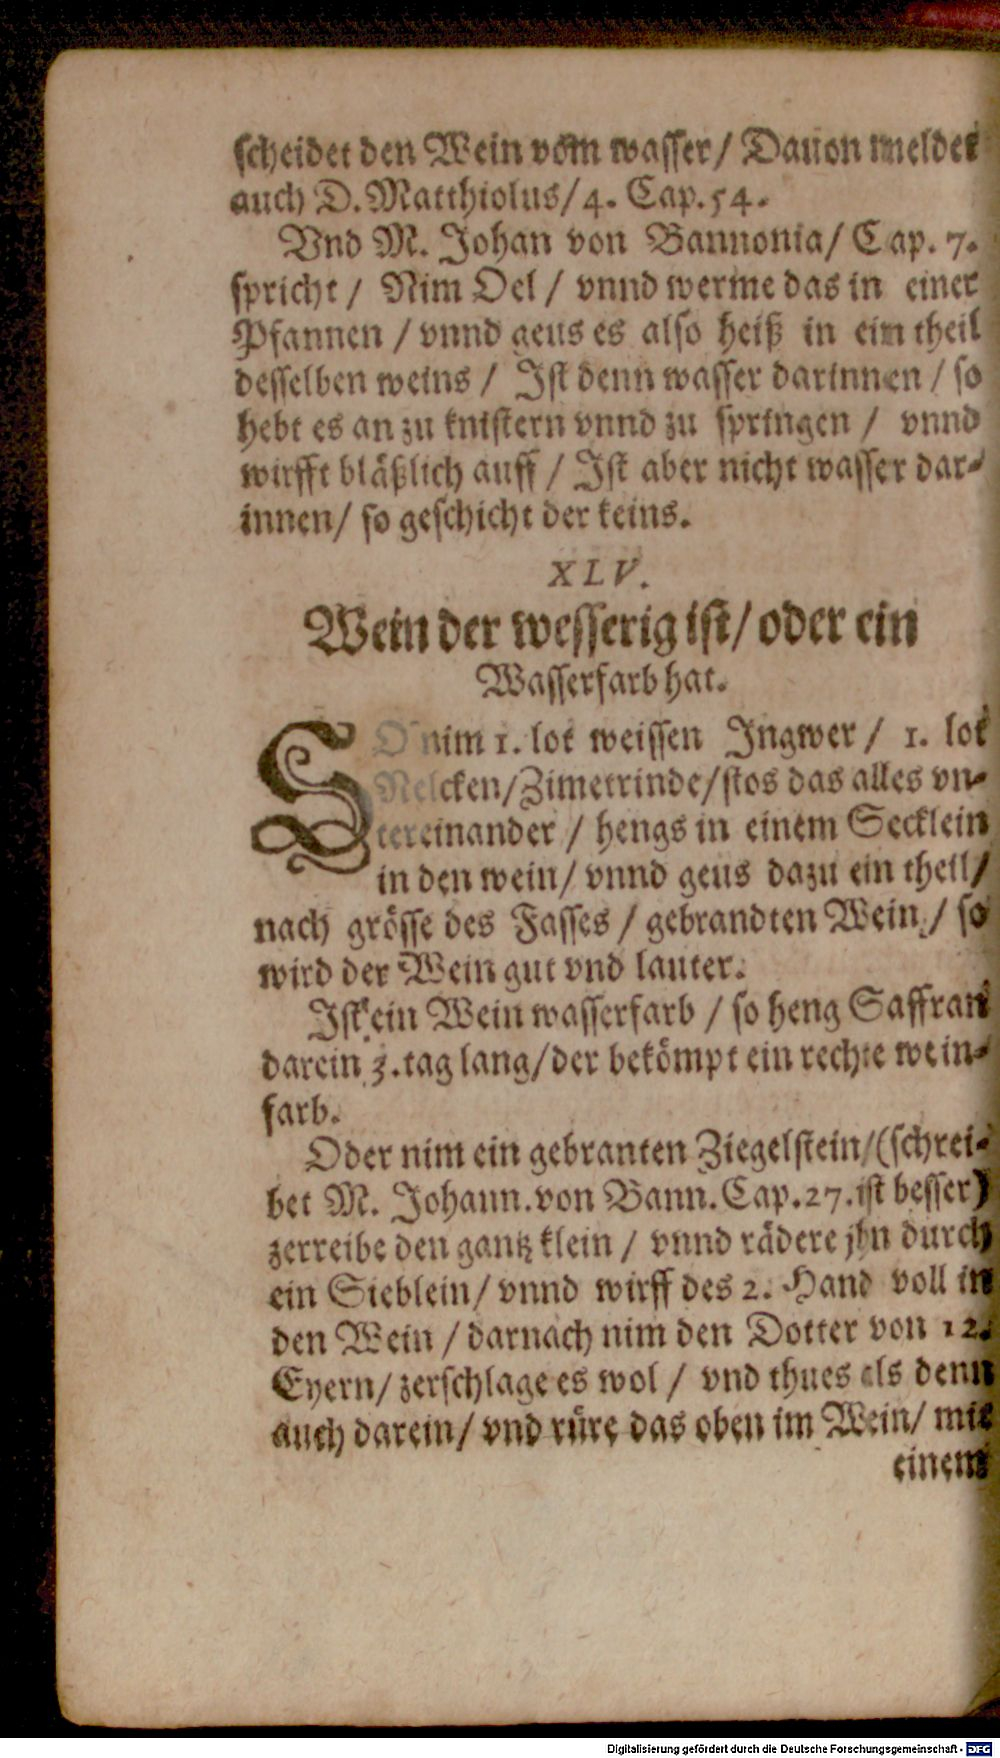 scheidet den Wein vom wasser / Dauon meldet
auch D. Matthiolus / 4. Cap. 54.
Vnd M. Johan von Bannonia / Cap. 7.
spricht / Nim Oel / vnnd werme das in einer
Pfannen / vnnd geus es also heiß in ein theil
desselben weins / Ist denn wasser darinnen / so
hebt es an zu knistern vnnd zu springen / vnnd
wirfft bläßlich auff / Ist aber nicht wasser dar-
innen / so geschicht der keins.
XLV.
Wein der wesserig ist / oder ein
Wasserfarb hat.
SO nim 1. lot weissen Ingwer / 1. lot
Nelcken / Zimetrinde / stos das alles vn-
tereinander / hengs in einem Secklein
in den wein / vnnd geus dazu ein theil /
nach grösse des Fasses / gebrandten Wein / so
wird der Wein gut vnd lauter.
Ist ein Wein wasserfarb / so heng Saffran
darein 3. tag lang / der bekömpt ein rechte wein-
farb.
Oder nim ein gebranten Ziegelstein / (schrei-
bet M. Johann. von Bann. Cap. 27. ist besser)
zerreibe den gantz klein / vnnd rädere jhn durch
ein Sieblein / vnnd wirff des 2. Hand voll in
den Wein / darnach nim den Dotter von 12.
Eyern / zerschlage es wol / vnd thues als denn
auch darein / vnd rüre das oben im Wein / mit
einem
Digitalisierung gefördert durch die Deutsche Forschungsgemeinschaft - DFG